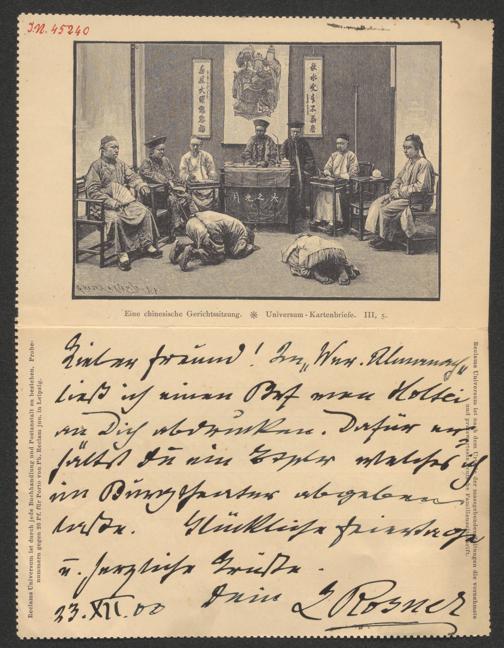 I.N. 45240
Eine chinesische Gerichtssitzung. ✻ Universum-Kartenbriefe. III, 5.
Lieber Freund! Im „Wnr. Almanach“
ließ ich einen Brf von Holtei
an Dich abdrucken. Dafür er-
hältst Du ein Explr welches ich
im Burgtheater abgeben
laße. Glückliche Feiertage
u. herzliche Grüße.
Dein
23. XII. 00
L Rosner
Reclams Universum ist durch jede Buchhandlung und Postanstalt zu beziehen. Probe-
nummern gegen 20 Pf. für Porto von Ph. Reclam jun. in Leipzig.
Reclams Universum ist nach dem
die vornehmste